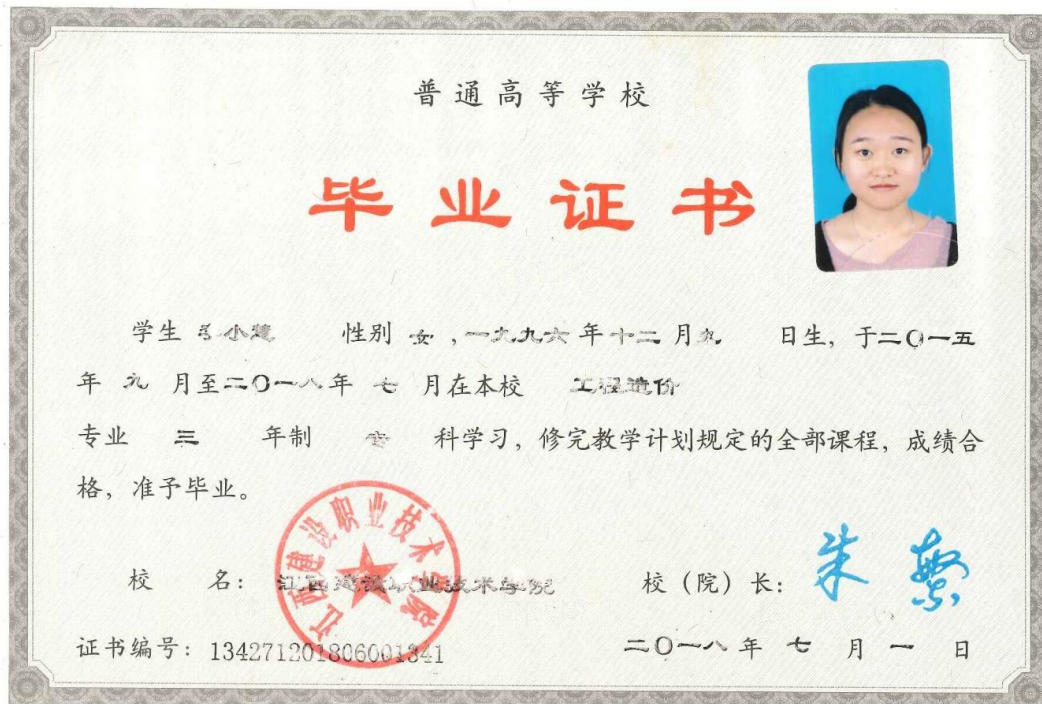 普通高等学校
毕业证书
学生 小慧 性别 女,一九九六年十二月九 日生,于二〇一五
年 九 月至二〇一八年 七 月在本校 工程造价
专业 三 年制 科学习,修完教学计划规定的全部课程,成绩合
格,准予毕业。
校 名: 江西建设职业技术学院 校(院)长: 朱 繁
江西建设职业技术学院
证书编号: 134271201806001341 二〇一八年 七 月 一 日